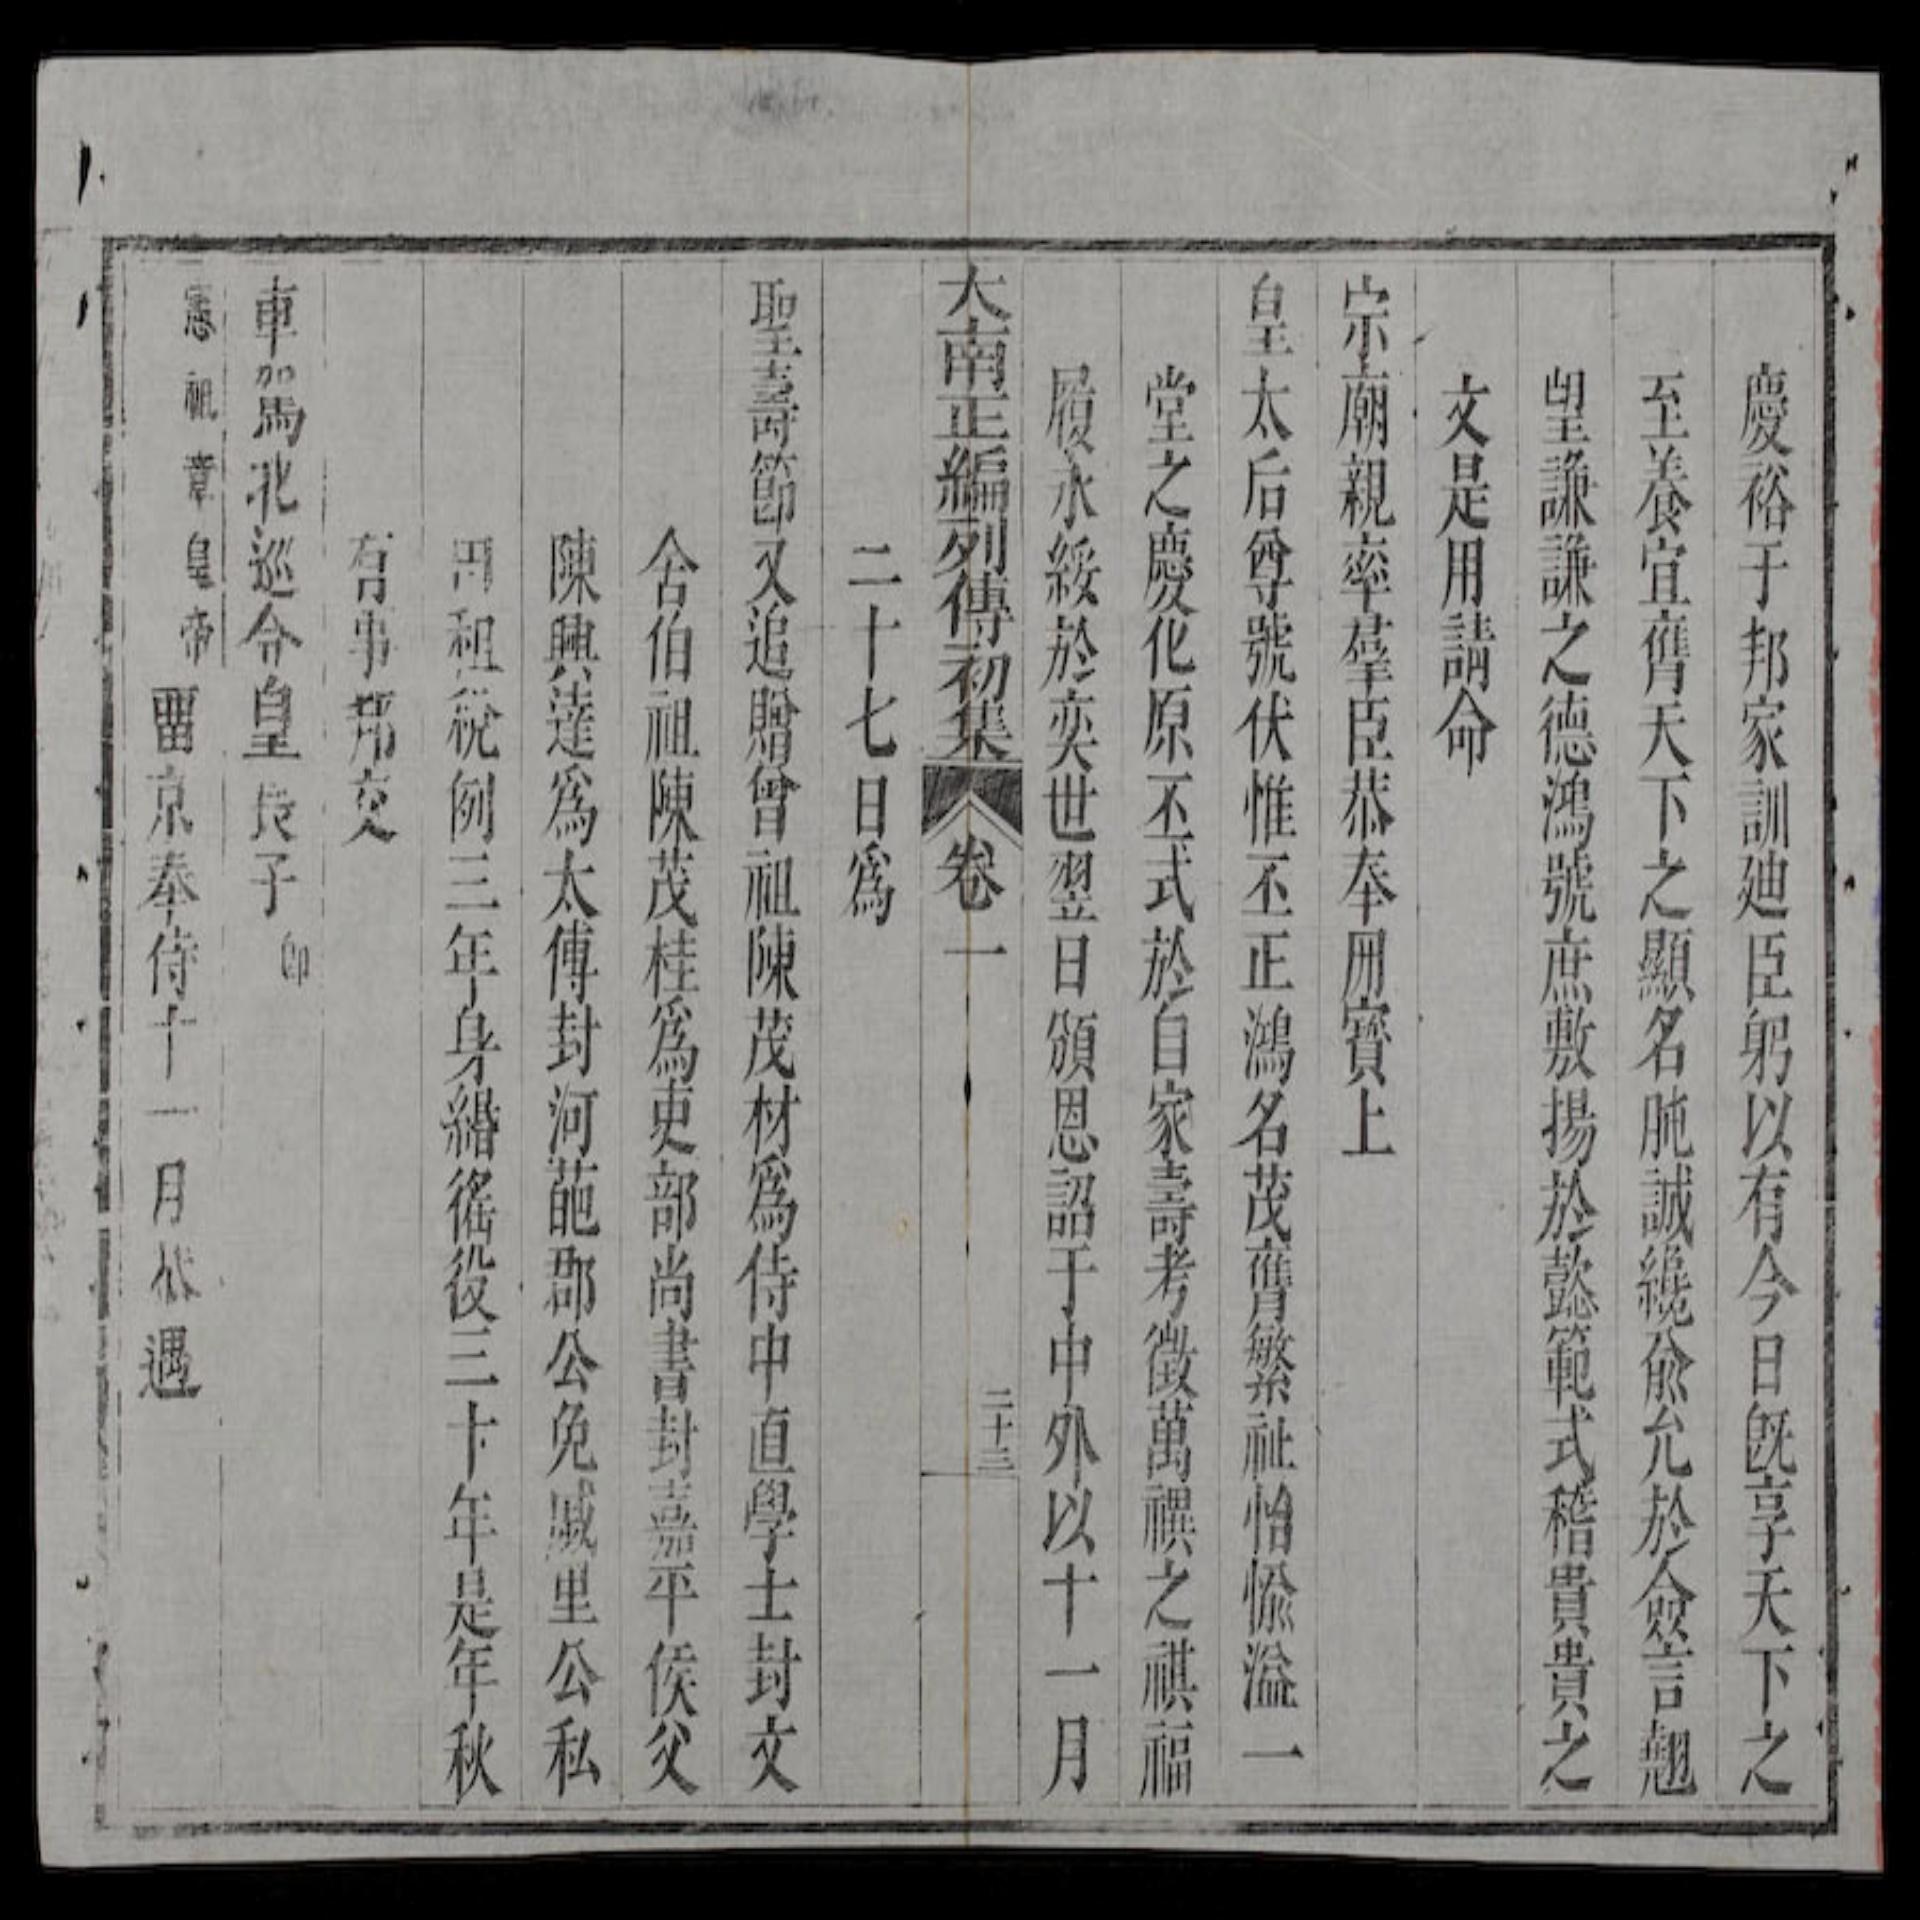 慶裕于邦家訓廸臣躬以有今日旣享天下之
至養宜膺天下之顯名肫誠纔兪允於僉言翹
望謙謙之德鴻號庶敷揚於懿範式稽貴貴之
文是用請命
宗廟親率羣臣恭奉冊寶上
皇太后尊號伏惟丕正鴻名茂膺繁祉怡愉溢一
堂之慶化原丕式於自家壽考徵萬禩之祺福
履永綏於奕世翌日頒恩詔于中外以十一月
大南正編列傳初集 卷一 二十三
二十七日爲
聖壽節又追贈曾祖陳茂材爲侍中直學士封文
舍伯祖陳茂桂爲吏部尚書封嘉平侯父
陳興達爲太傅封河葩郡公免戚里公私
田租稅例三年身緡徭役三十年是年秋
有事邦交
車駕北巡命皇長子卽
憲祖章皇帝畱京奉侍十一月遇